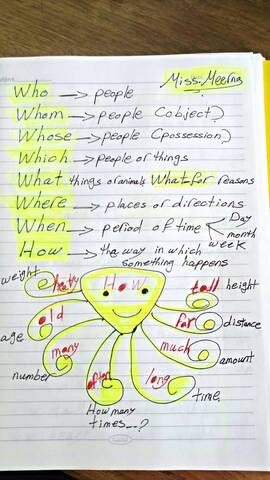 Miss. Meerna
Who → people
Whom → people (object)
Whose → people (possession)
Which → people or things
What things or animals What for reasons
Where → places or directions
When → period of time Day month week
How → the way in which something happens
How
weight heavy
tall height
old age
far distance
many number
much amount
often How many times..?
long time